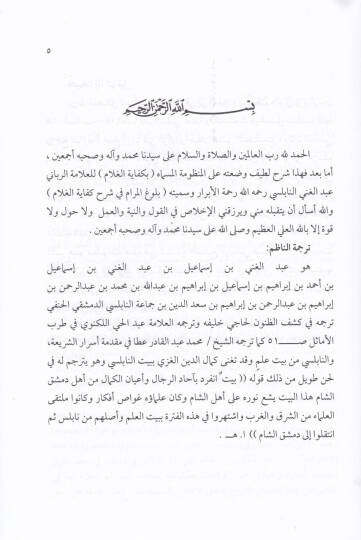 ٥
بسم الله الرحمن الرحيم
الحمد لله رب العالمين والصلاة والسلام على سيدنا محمد وآله وصحبه أجمعين ،
أما بعد فهذا شرح لطيف وضعته على المنظومة المسماه ( بكفاية الغلام ) للعلامة الرباني
عبد الغني النابلسي رحمه الله رحمة الأبرار وسميته ( بلوغ المرام في شرح كفاية الغلام )
والله أسأل أن يتقبله مني ويرزقني الإخلاص في القول والنية والعمل ولا حول ولا
قوة إلا بالله العلي العظيم وصلى الله على سيدنا محمد وآله وصحبه أجمعين .
ترجمة الناظم:
هو عبد الغني بن إسماعيل بن عبد الغني بن إسماعيل
بن أحمد بن إبراهيم بن إسماعيل بن إبراهيم بن عبدالله بن محمد بن عبدالرحمن بن
إبراهيم بن عبدالرحمن بن إبراهيم بن سعد الدين بن جماعة النابلسي الدمشقي الحنفي
ترجمه في كشف الظنون لحاجي خليفه وترجمه العلامة عبد الحي اللكنوي في طرب
الأماثل صـــ٥١ كما ترجمه الشيخ / محمد عبد القادر عطا في مقدمة أسرار الشريعة،
والنابلسي من بيت علمٍ وقد تغنى كمال الدين الغزي ببيت النابلسي وهو يترجم له في
لحن طويل من ذلك قوله (( بيت ٌانفرد بآحاد الرجال وأعيان الكمال من أهل دمشق
الشام هذا البيت يشع نوره على أهل الشام وكان علماؤه غواص أفكار وكانوا ملتقى
العلماء من الشرق والغرب واشتهروا في هذه الفترة ببيت العلم وأصلهم من نابلس ثم
انتقلوا إلى دمشق الشام )) ا. هـ .